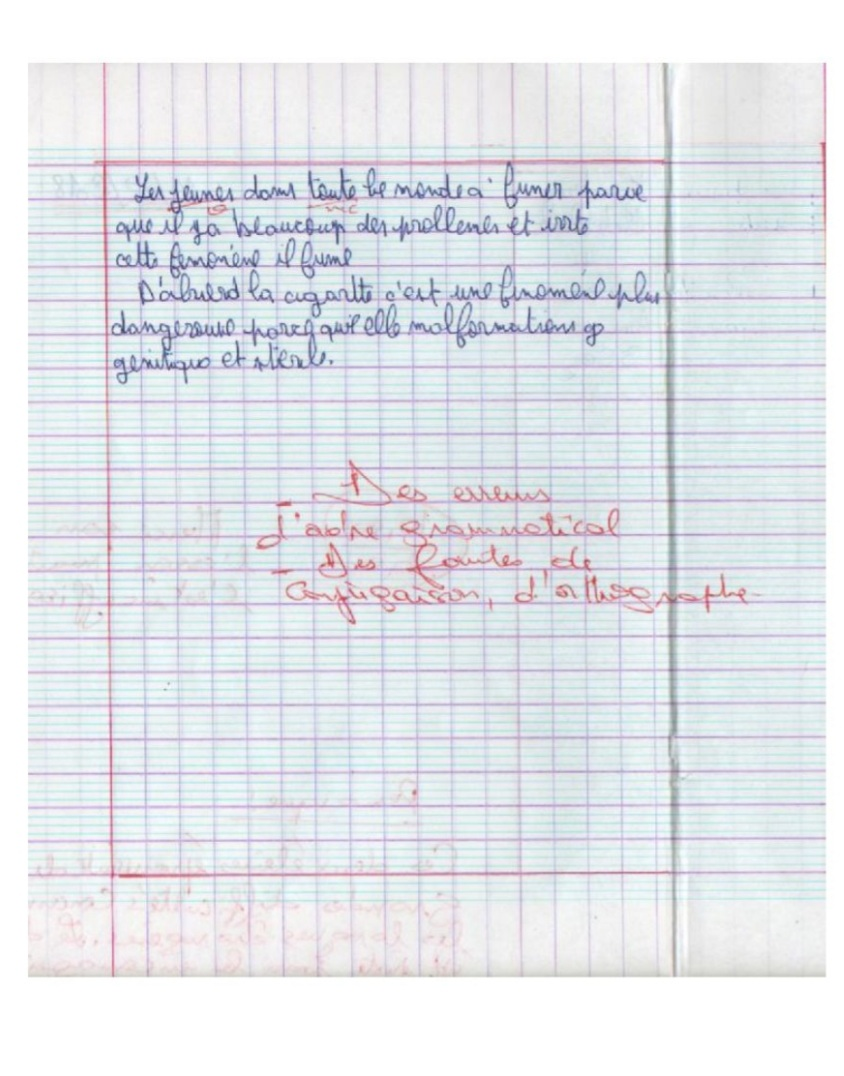 Les jeunes dans toute le monde à fumer parce
que il ya beaucoup des problemes et
cette fenomene il fume
D'abuerd la cigartte c'est une finomene plus
dangerouse parcq qu'il elle malformations ge
genitique et sterile.
- Des erreurs
d'ordre grammatical
- Des fautes de
conjugaison, d'orthographe